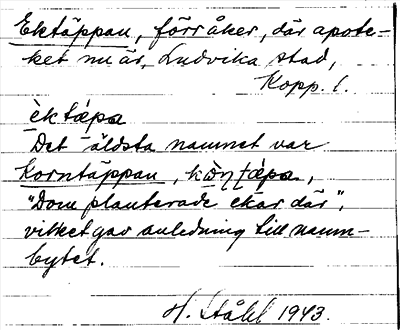 Ektäppan, förr åker, där apote-
ket nu är, Ludvika stad,
Kopp. l.
èktæpa
Det äldsta namnet var
Korntäppan,
"Dom planterade ekar där",
vilket gav anledning till namn-
bytet.
H. Ståhl 1943.